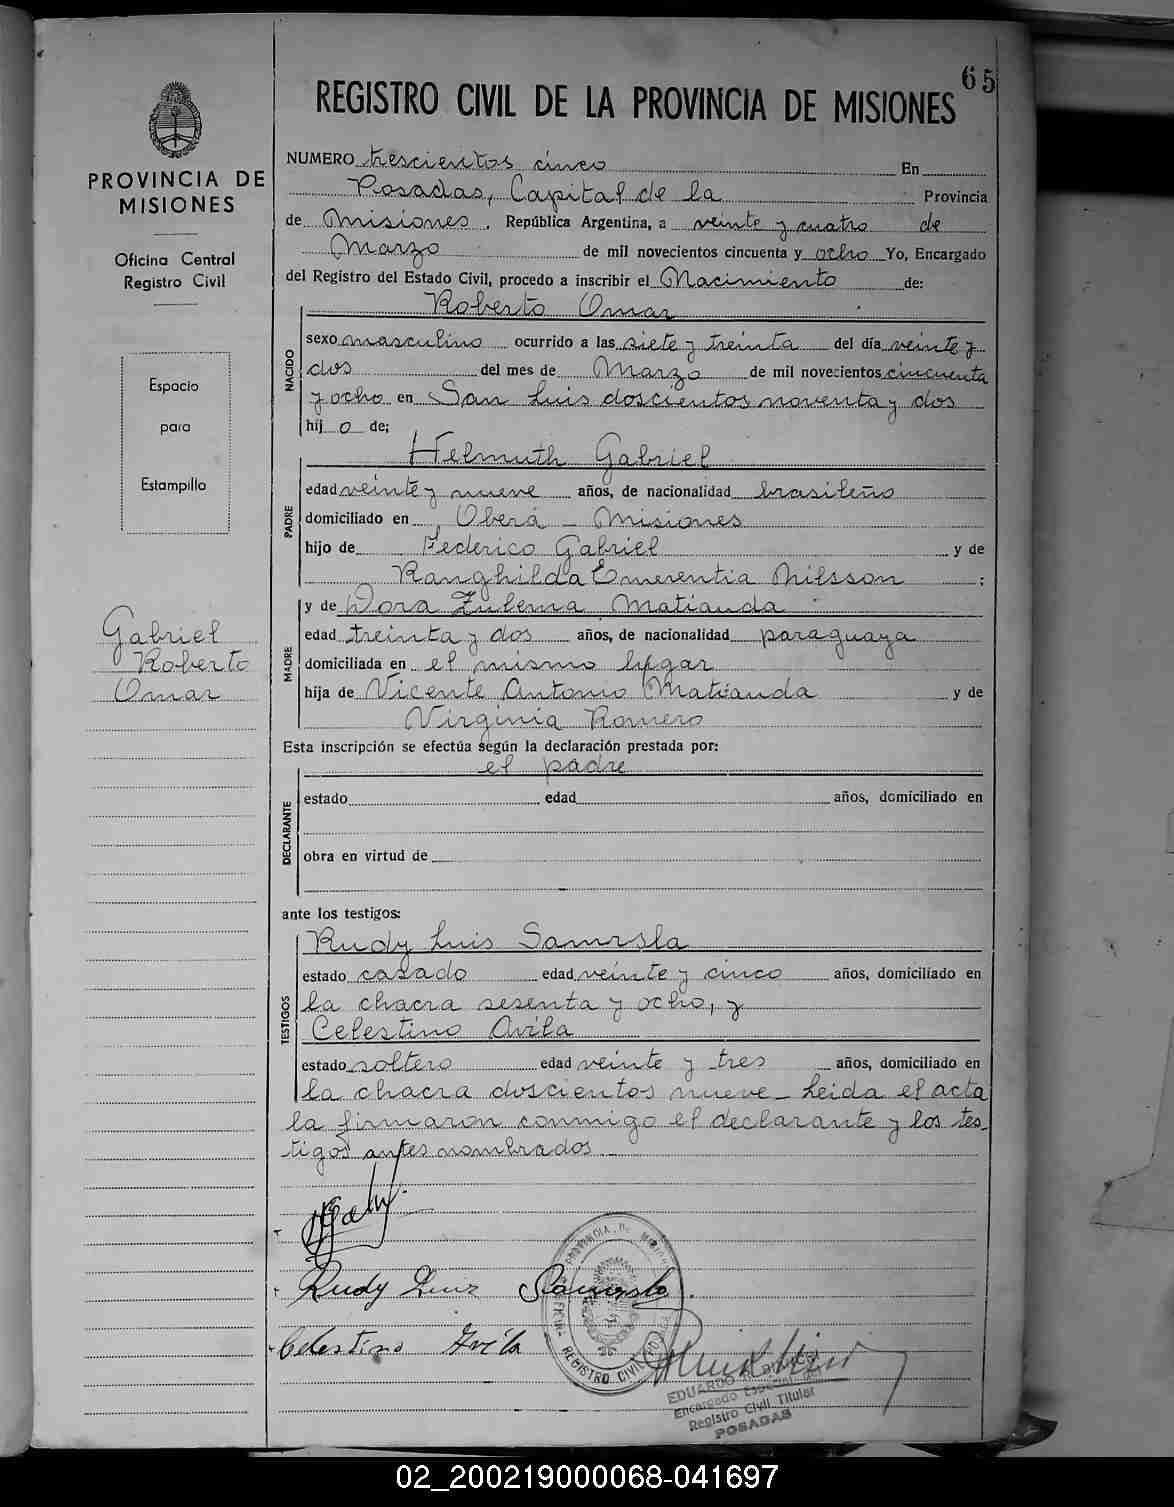 65
REGISTRO CIVIL DE LA PROVINCIA DE MISIONES
PROVINCIA DE
MISIONES
Oficina Central
Registro Civil
Espacio
para
Estampillo
Gabriel
Roberto
Omar
NUMERO trescientos cinco En
Posadas, Capital de la Provincia
de Misiones, República Argentina, a veinte y cuatro de
Marzo de mil novecientos cincuenta y ocho Yo, Encargado
del Registro del Estado Civil, procedo a inscribir el Nacimiento de:
Roberto Omar
NACIDO
sexo masculino ocurrido a las siete y treinta del día veinte y
dos del mes de Marzo de mil novecientos cincuenta
y ocho en San Luis doscientos noventa y dos
hij o de;
Helmuth Gabriel
PADRE
edad veinte y nueve años, de nacionalidad brasileño
domiciliado en Oberá - Misiones
hijo de Federico Gabriel y de
Ranghilda Emerentia Nilsson ;
y de Dora Zulema Matiauda
MADRE
edad treinta y dos años, de nacionalidad paraguaya
domiciliada en el mismo lugar
hija de Vicente Antonio Matiauda y de
Virginia Romero
Esta inscripción se efectúa según la declaración prestada por:
el padre
DECLARANTE
estado edad años, domiciliado en
obra en virtud de
ante los testigos:
TESTIGOS
Rudy Luis
estado casado edad veinte y cinco años, domiciliado en
la chacra sesenta y ocho, y
Celestino Avila
estado soltero edad veinte y tres años, domiciliado en
la chacra doscientos nueve - Leida el acta
la firmaron conmigo el declarante y los tes-
tigos antes nombrados
Rudy Luis
Celestino Avila
PROVINCIA DE MISIONES
REGISTRO CIVIL
EDUARDO
Encargado
Registro Civil Titular
POSADAS
02_200219000068-041697